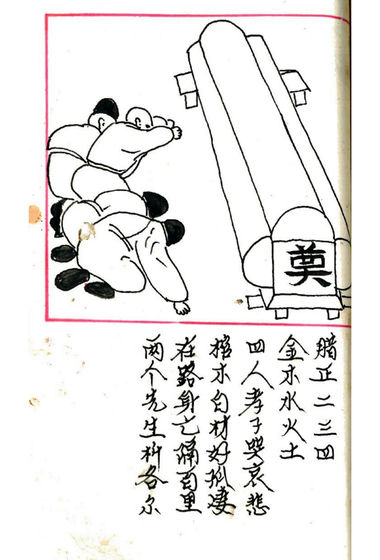 奠
腊正二三四
金木水火土
四人孝子哭哀悲
棺木白材好孤凄
在路身亡隔百里
两个先生各尔